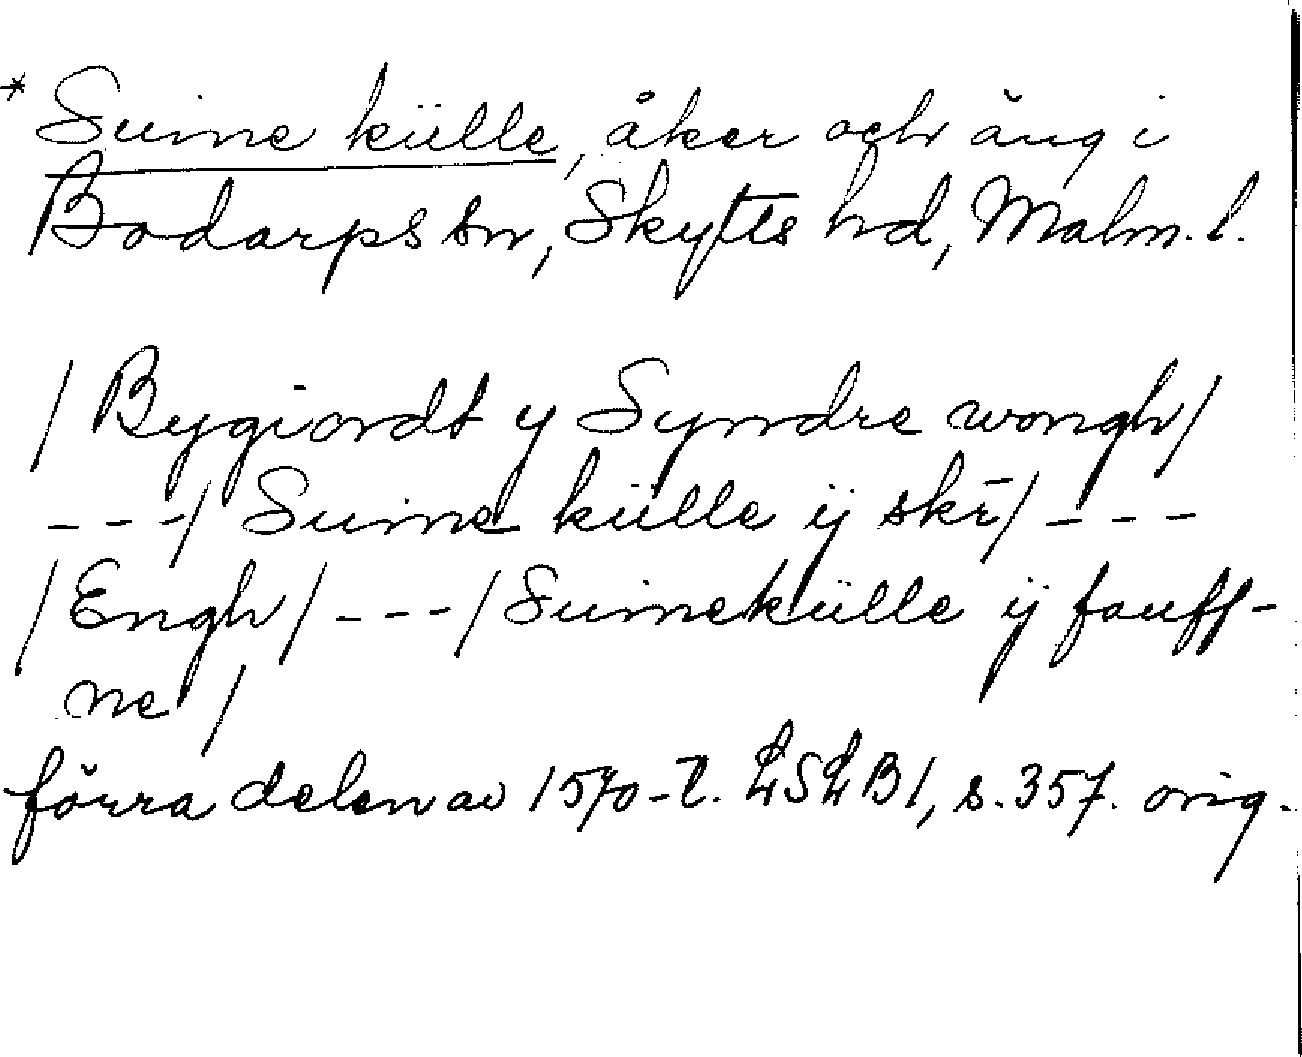 * Suine külle, åker och äng i
Bodarps sn, Skytts hd, Malm. l.
/ Bygiordt y Syndre wongh /
---/ Suine külle ÿ skr̄ / ---
/ Engh / ---/ Suinekülle ÿ fauff-
ne /
förra delen av 1570-t. LSLB1, s. 357. orig.